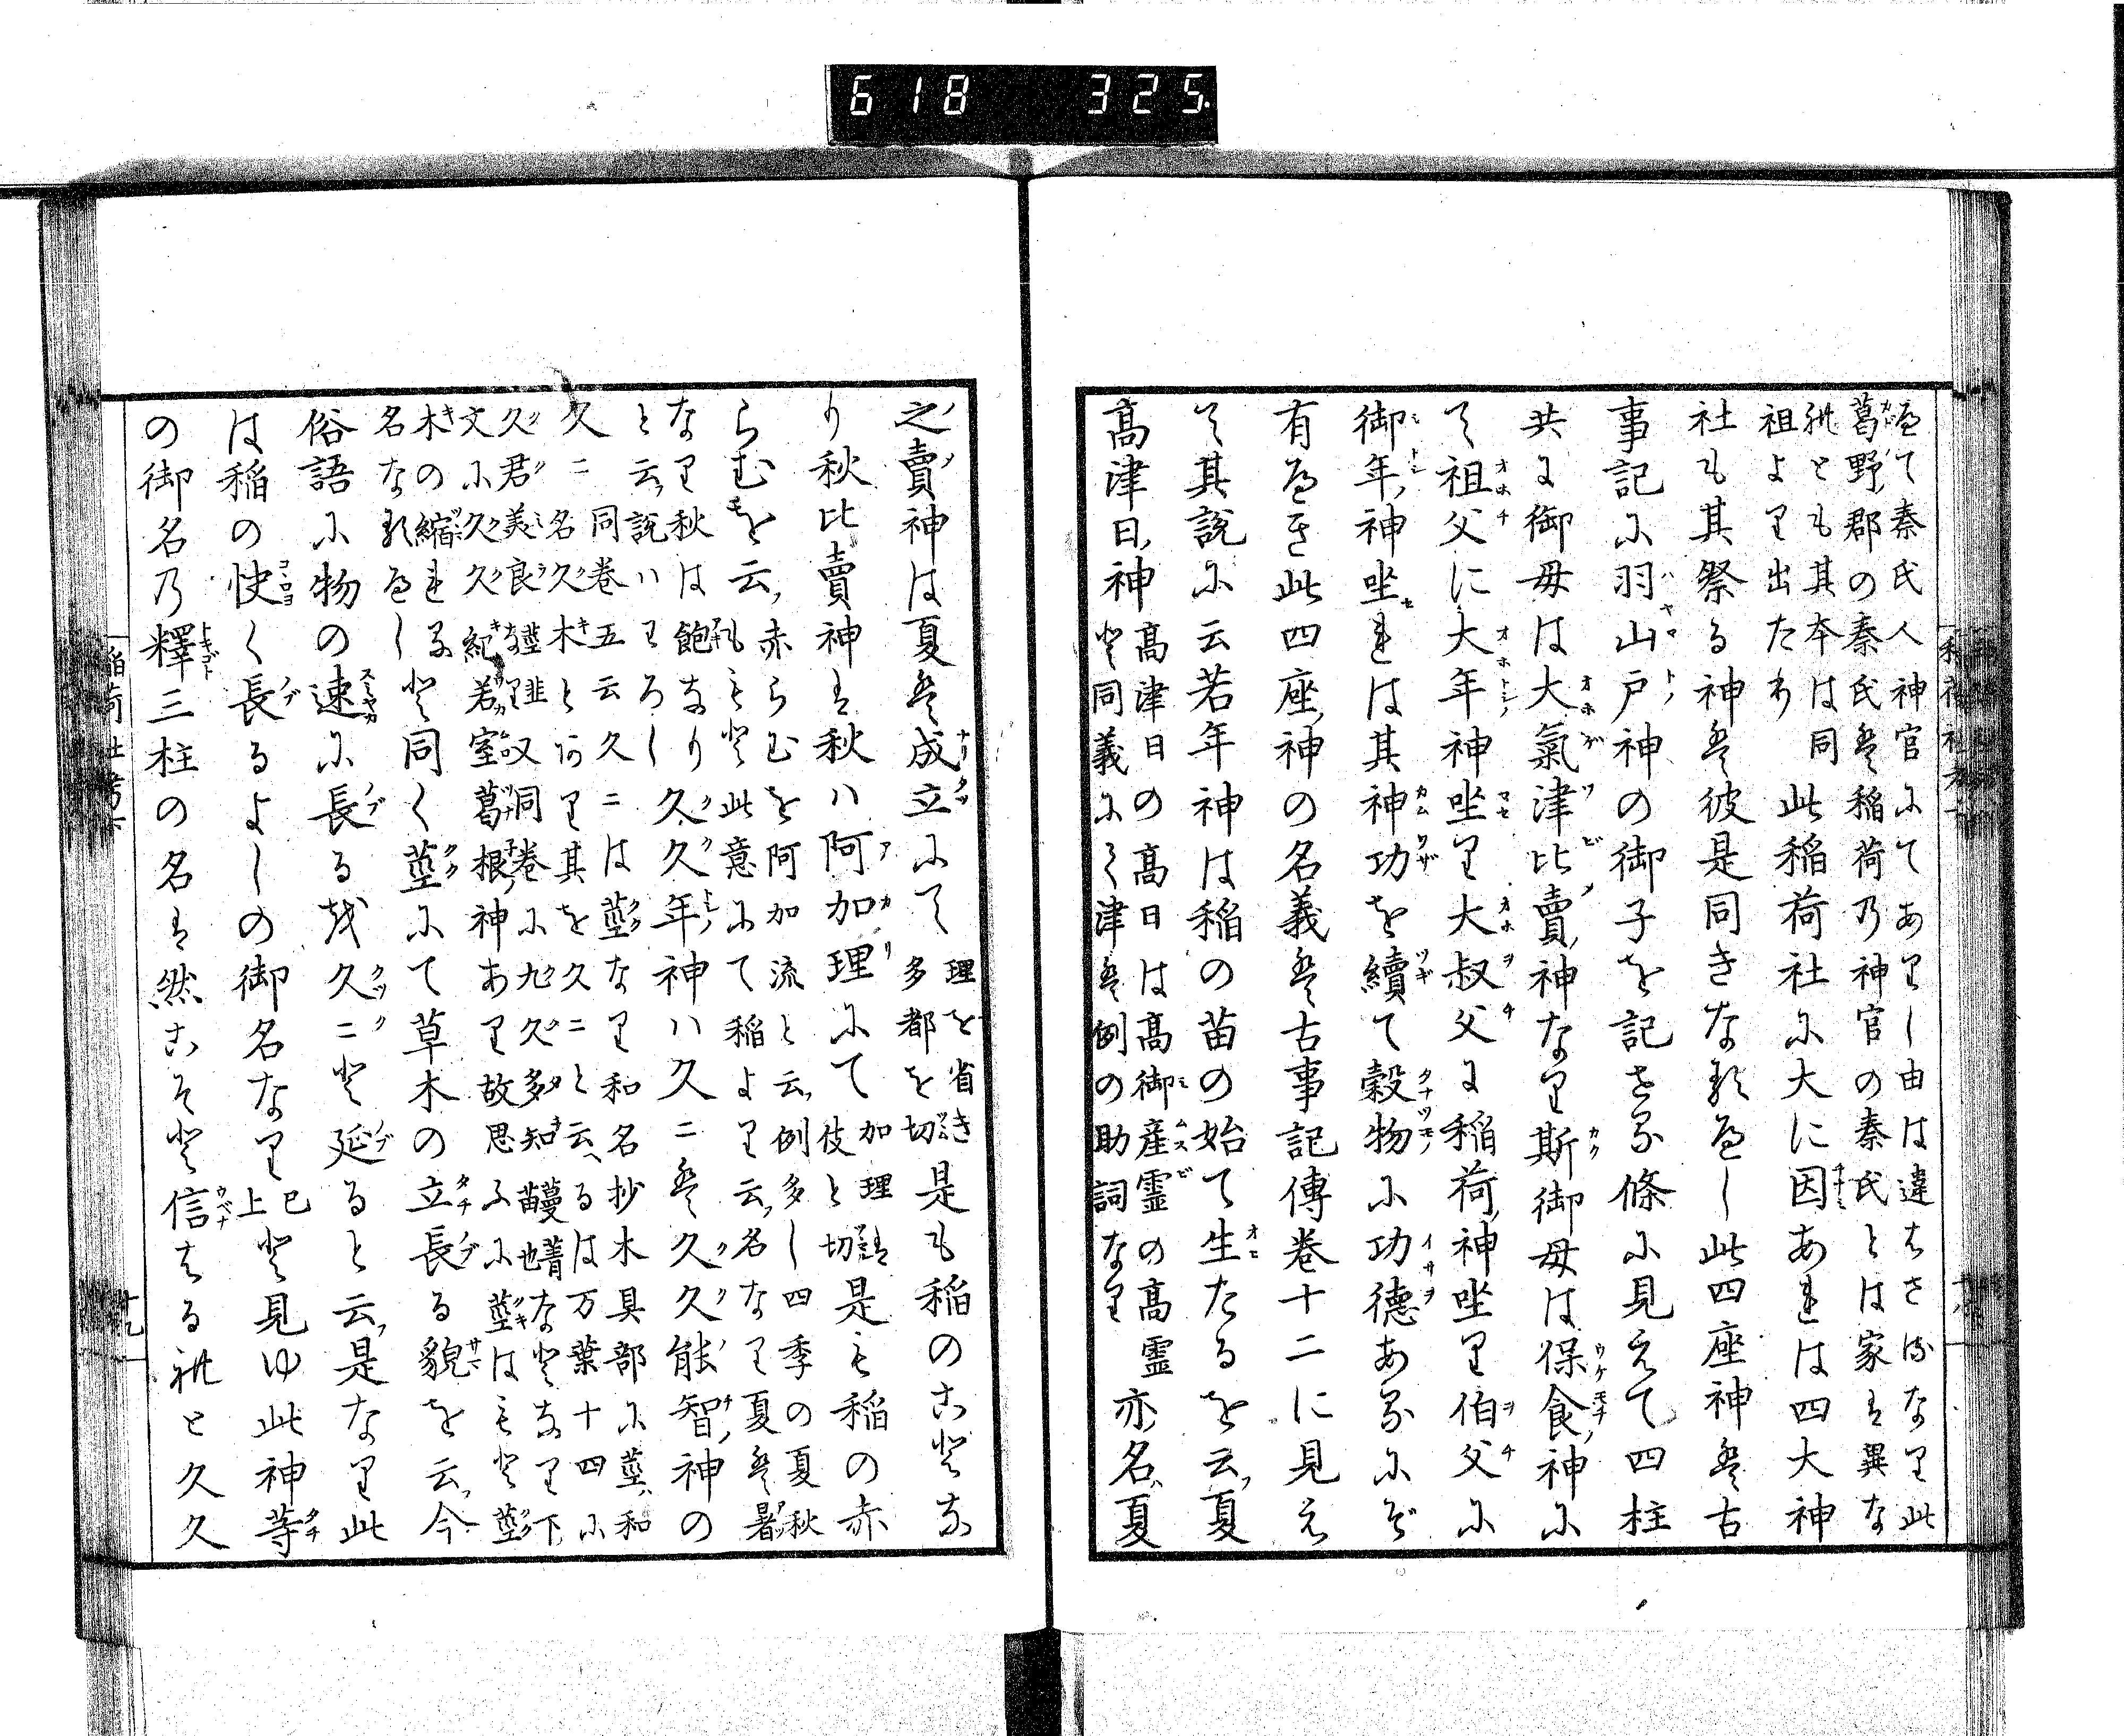 618 325.
邊て秦氏人神官にてありし由は違はさるなり此
葛野郡の秦氏は稲荷乃神官の秦氏とは家は異な
れとも其本は同
祖より出たり 此稲荷社に大に因あれは四大神
社も其祭る神は彼是同きなるべし此四座神は古
事記に羽山戸神の御子を記せる條に見えて四柱
共に御母は大氣津比賣神なり斯御母は保食神に
て祖父に大年神坐り大叔父に稲荷神坐り伯父に
御年神坐れは其神功を續て穀物に功德あるにぞ
有べき此四座神の名義は古事記傳巻十二に見え
て其説に云若年神は稲の苗の始て生たるを云夏
高津日神 高津日の高日は高御産霊の高霊
と同義にて津は例の助詞なり 亦名夏
之賣神は夏は成立にて 理を省き
多都を切 是も稲のことな
り秋比賣神は秋ハ阿加理にて 加理
伎と切 是も稲の赤
らむを云 赤らむを阿加流と云例多し四季の夏秋
もと此意にて稲より云名なり夏は暑
なり秋は飽なり
と云説ハわろし 久久年神ハ久二は久久能智神の
久二 同巻五云久二は莖なり和名抄木具部に莖和
名久木とあり其を久二と云るは万葉十四に
久君美良 莖韮 又同巻に九久多知 蔓菁
苗也 などあり下
文に久久紀若室葛根神あり故思ふに莖はもと莖
木の縮れる
名なるべし と同く莖にて草木の立長る貌を云今
俗語に物の速に長るを久二と延ると云是なり此
は稲の快く長るよしの御名なり 已
上 と見ゆ此神等
の御名乃釋三柱の名は然こそと信はるれと久久
稲荷社考下